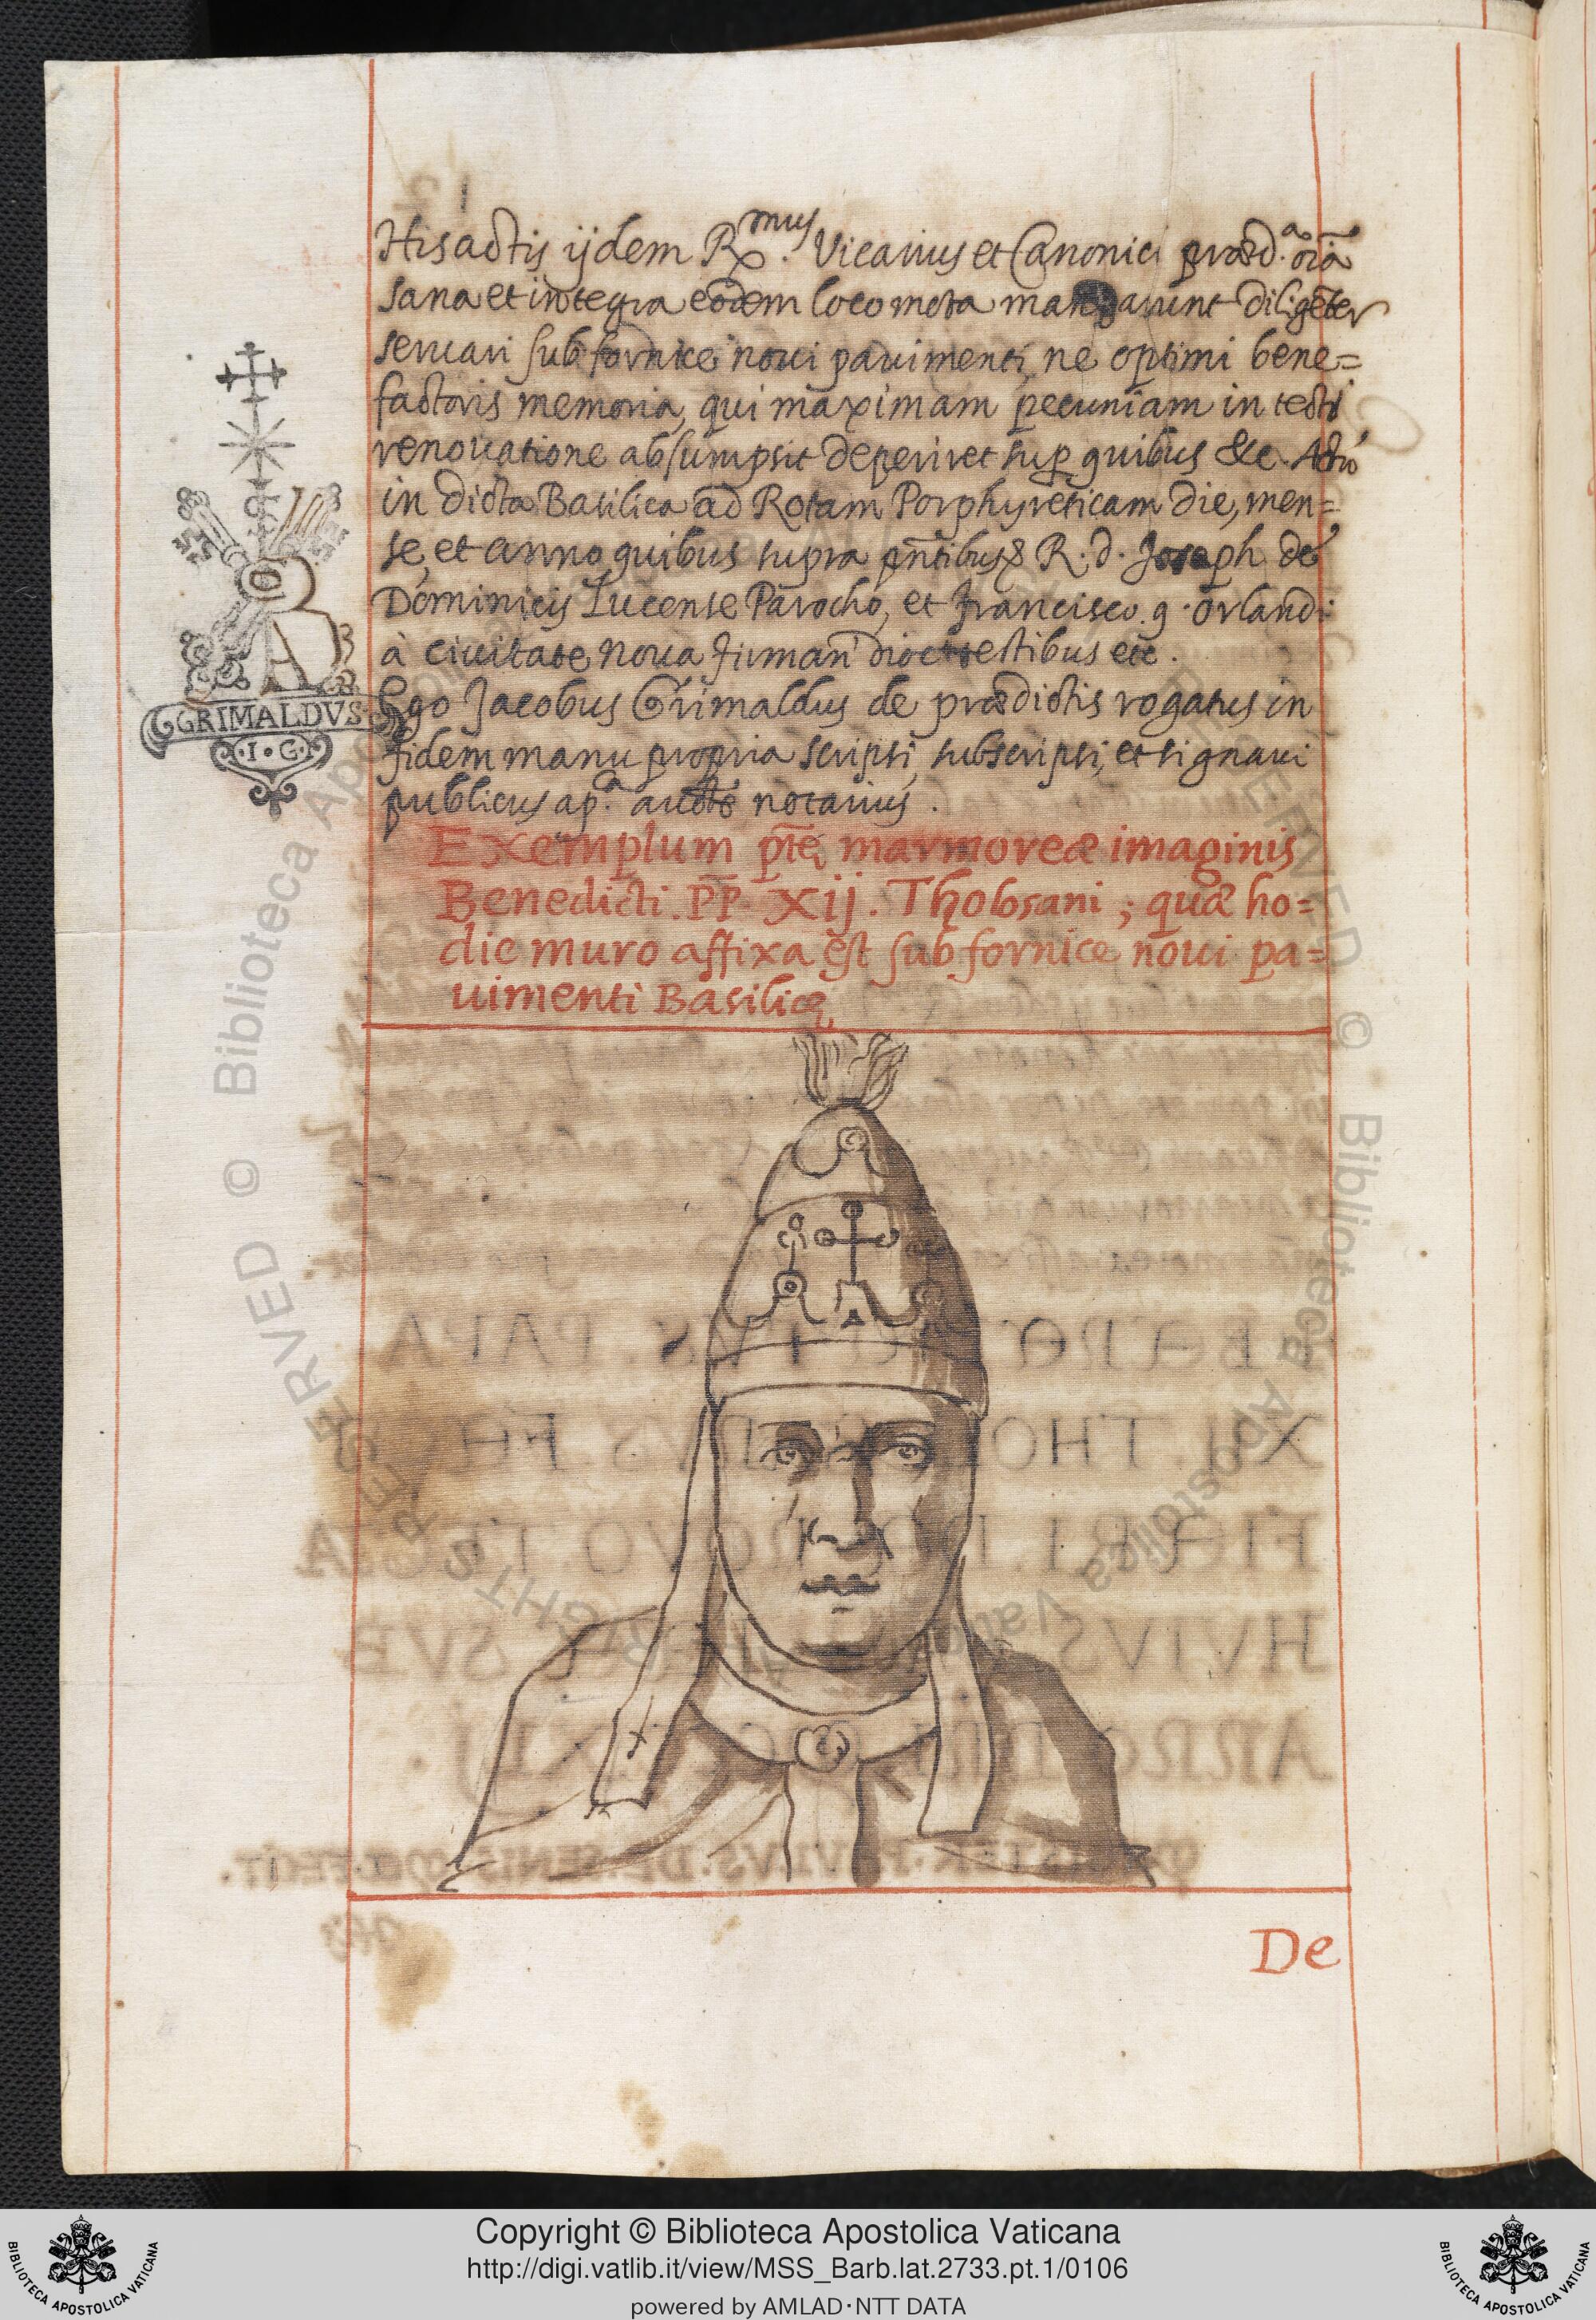 His actis ijdem R.mus Vicarius et Canonici præd.a oĩa
sana et integra eodem loco mota mandarunt diligẽter
seruari sub fornice noui pauimenti, ne optimi bene=
factoris memoria, qui maximam pecuniam in tecti
renouatione absumpsit deperiret sup quibus &c. Actũ
in dicta Basilica ad Rotam Porphyreticam die, men=
se, et anno quibus supra pñtibus R. d. Joseph de
Dominicis Lucense Parocho, et Francisco q. Orlandi
à ciuitate noua firman dioc testibus etc.
Ego Jacobus Grimaldus de prædictis rogatus in
fidem manu propria scripsi, subscripsi, et signaui
publicus ap.a aucte notarius.
GRIMALDVS
·I·G·
Exemplum ptẽ marmoreæ imaginis
Benedicti. PP. XIJ. Tholosani; quæ ho=
die muro affixa est sub fornice noui pa=
uimenti Basilicę
De
RESERVED © Biblioteca Apostolica
Biblioteca Apostolica Vaticana
RIGHTS RESERVED © Biblioteca Apostolica Vaticana
Copyright © Biblioteca Apostolica Vaticana
http://digi.vatlib.it/view/MSS_Barb.lat.2733.pt.1/0106
powered by AMLAD·NTT DATA
BIBLIOTECA APOSTOLICA VATICANA
BIBLIOTECA APOSTOLICA VATICANA